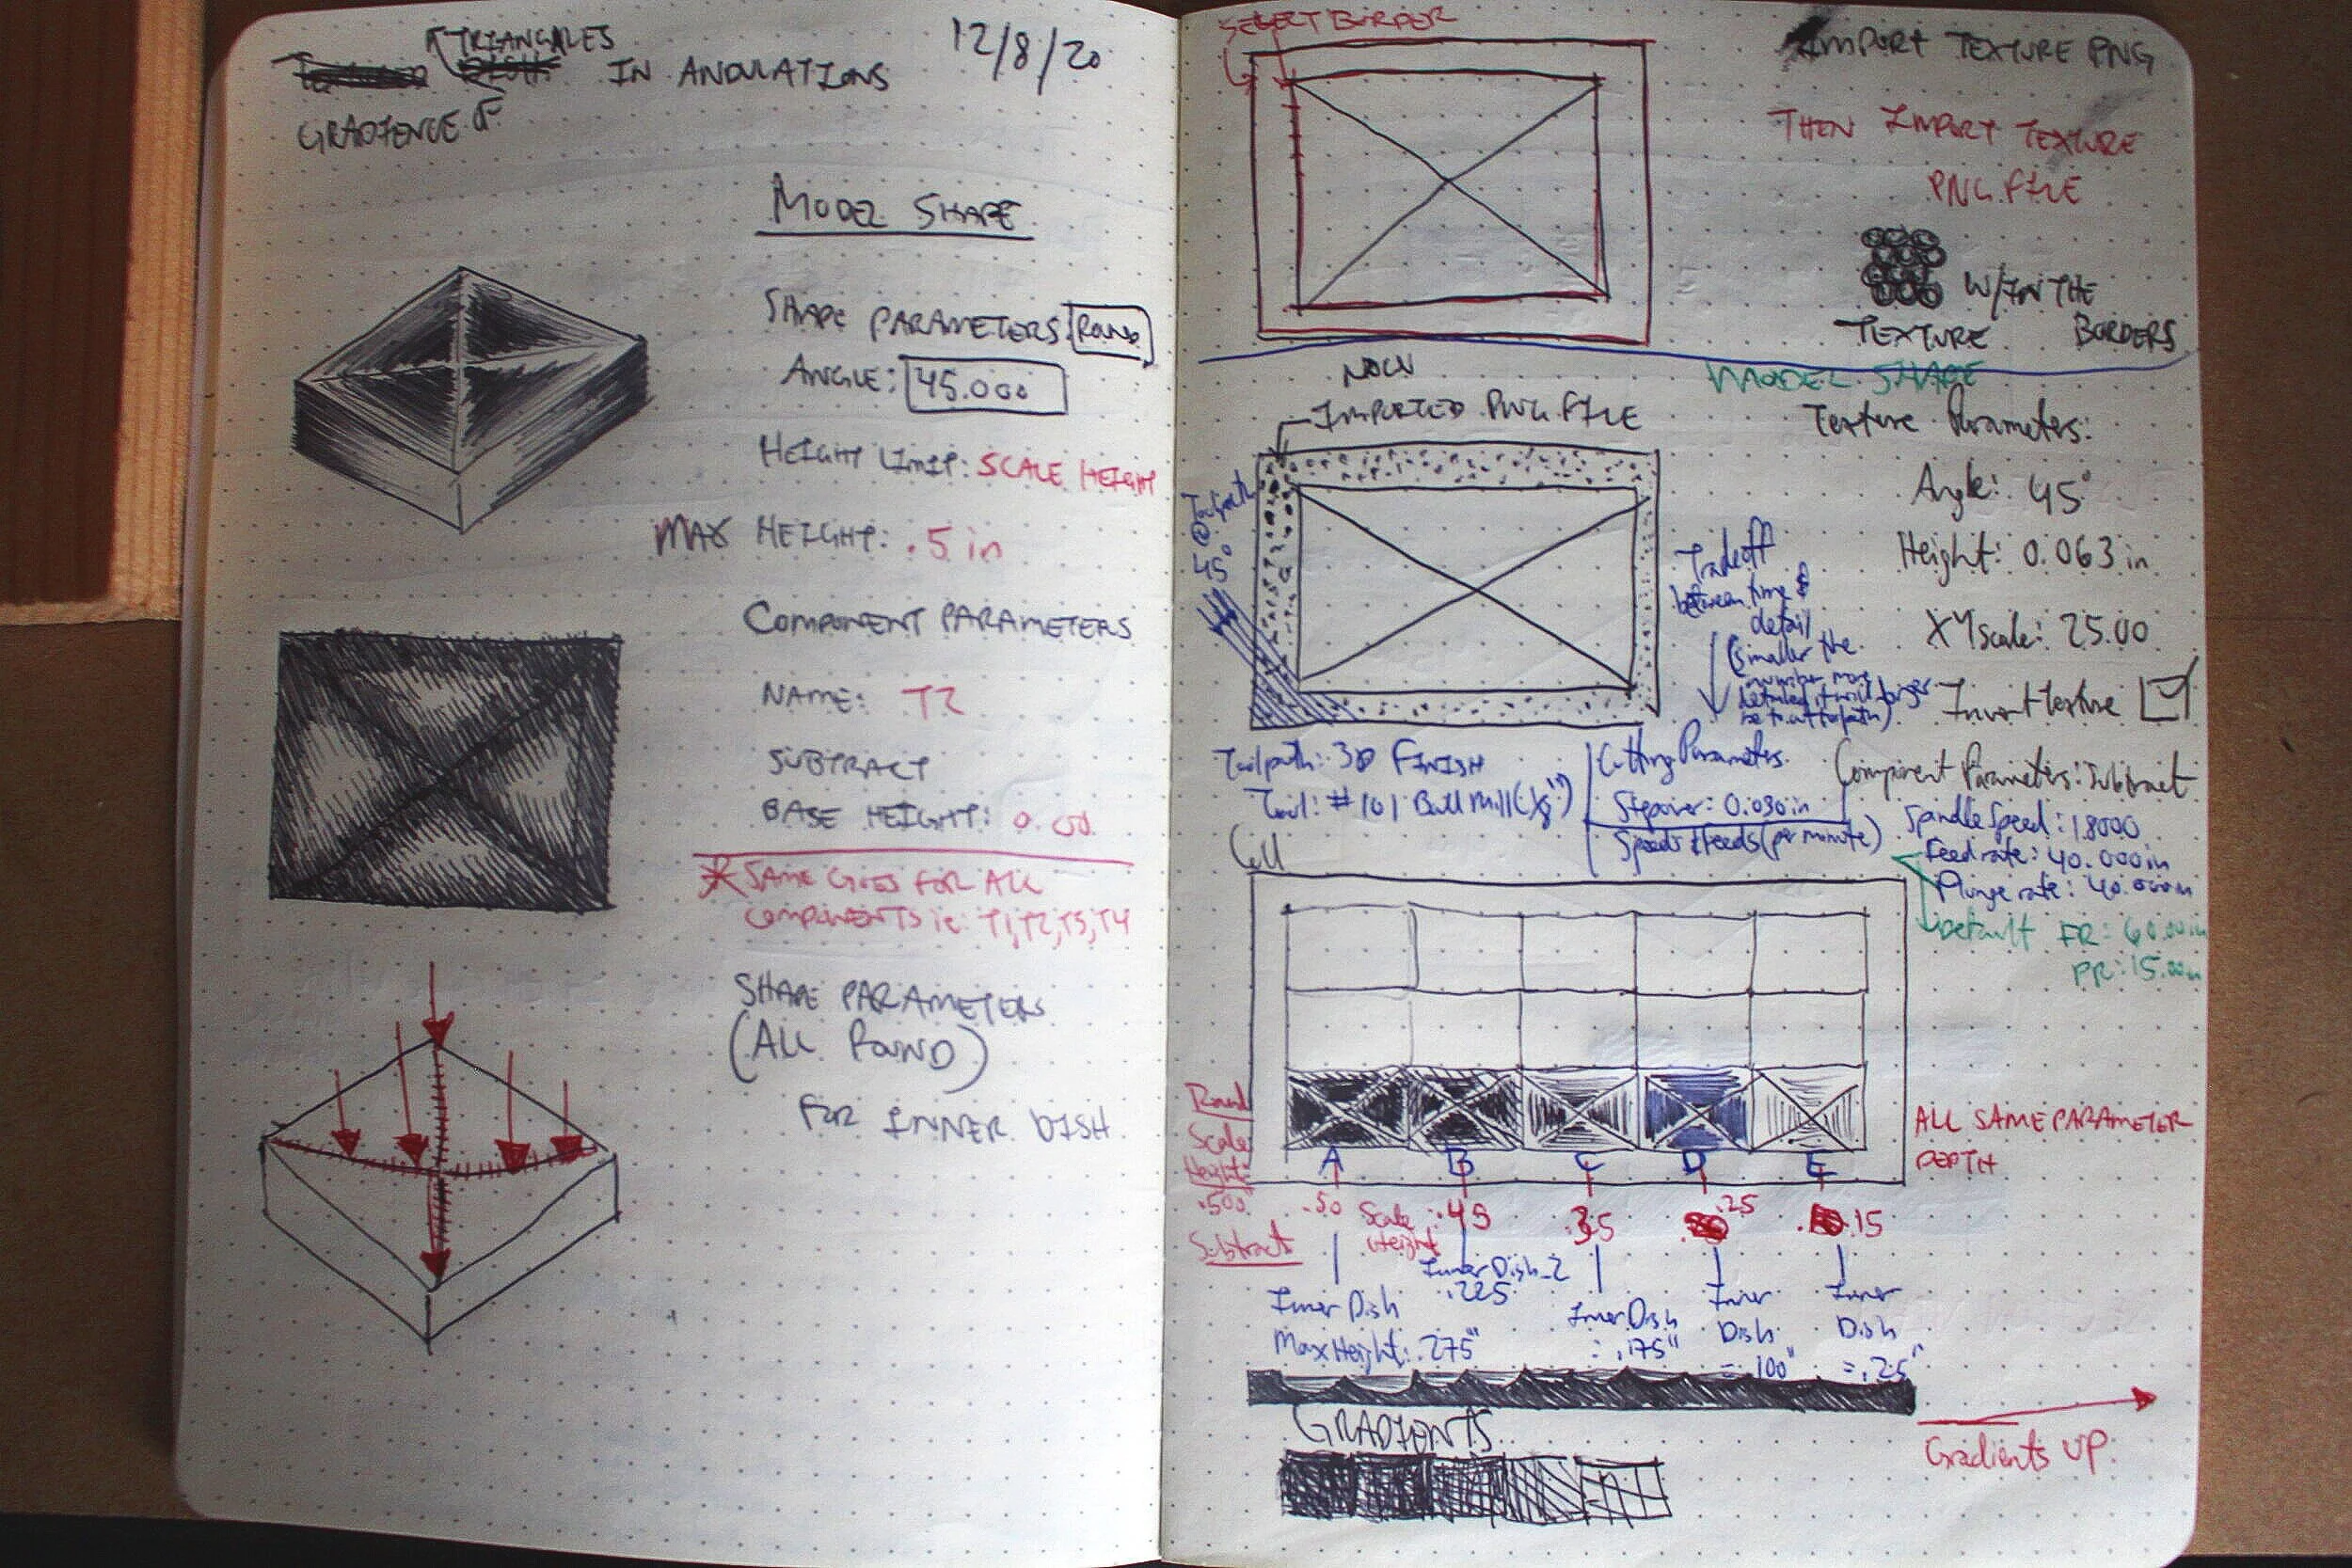 TRIANGALES
IN ANDULATIONS
12/8/20
GRADIENCE OF
MODEL SHAPE
SHAPE PARAMETERS: ROUND
ANGLE: 45.000
HEIGHT LIMIT: SCALE HEIGHT
MAX HEIGHT: .5 in
COMPONENT PARAMETERS
NAME: T2
SUBTRACT
BASE HEIGHT: 0.00
* SAME GOES FOR ALL
COMPONENTS ie: T1, T2, T3, T4
SHAPE PARAMETERS
(ALL ROUND)
FOR INNER DISH
SELECT BORDER
IMPORT TEXTURE PNG
THEN IMPORT TEXTURE
PNG FILE
W/IN THE
TEXTURE BORDERS
NOW
IMPORTED PNG FILE
MODEL SHAPE
Texture Parameters:
Angle: 45°
Height: 0.063 in
XY Scale: 25.00
Invert texture
Component Parameters: Subtract
Toolpath
@
45°
Tradeoff
between time &
detail
(smaller the
number more
detailed it will longer
be to cut toolpath)
Toolpath: 3D FINISH
Tool: #101 Ball Mill (1/8")
Cutting Parameters
Stepover: 0.030 in
Speeds & Feeds (per minute)
Spindle Speed: 18000
Feed rate: 40.000 in
Plunge rate: 40.000 in
Default FR: 60.00 in
PR: 15.00 in
Round
Scale
Height:
.500
Subtract
A B C D E
ALL SAME PARAMETER
DEPTH
.50
Scale
Height
.45
.35
.25
.15
Inner Dish
Max Height: .275"
Inner Dish_2
.225
Inner Dish
= .175"
Inner
Dish
= .100"
Inner
Dish
= .25"
GRADIENTS
Gradients UP